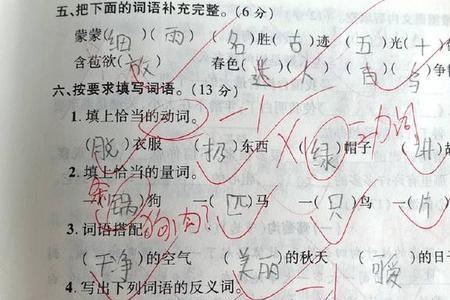 五、把下面的词语补充完整。(6分)
蒙蒙(细)(雨) (名)胜(古)迹 (五)光(十)
含苞欲(放) 春色(迷)(人) (百)(鸟)争
六、按要求填写词语。(13分) -1
1.填上恰当的动词。 动词
(脱)衣服 (扔)东西 (绿)帽子 (讲)故
2.填上恰当的量词。
一(锅)狗 一(匹)马 一(只)鸟 一(片)
条 狗肉?
3.词语搭配
(干净)的空气 (美丽)的秋天 (可爱)的日
4.写出下列词语的反义词。